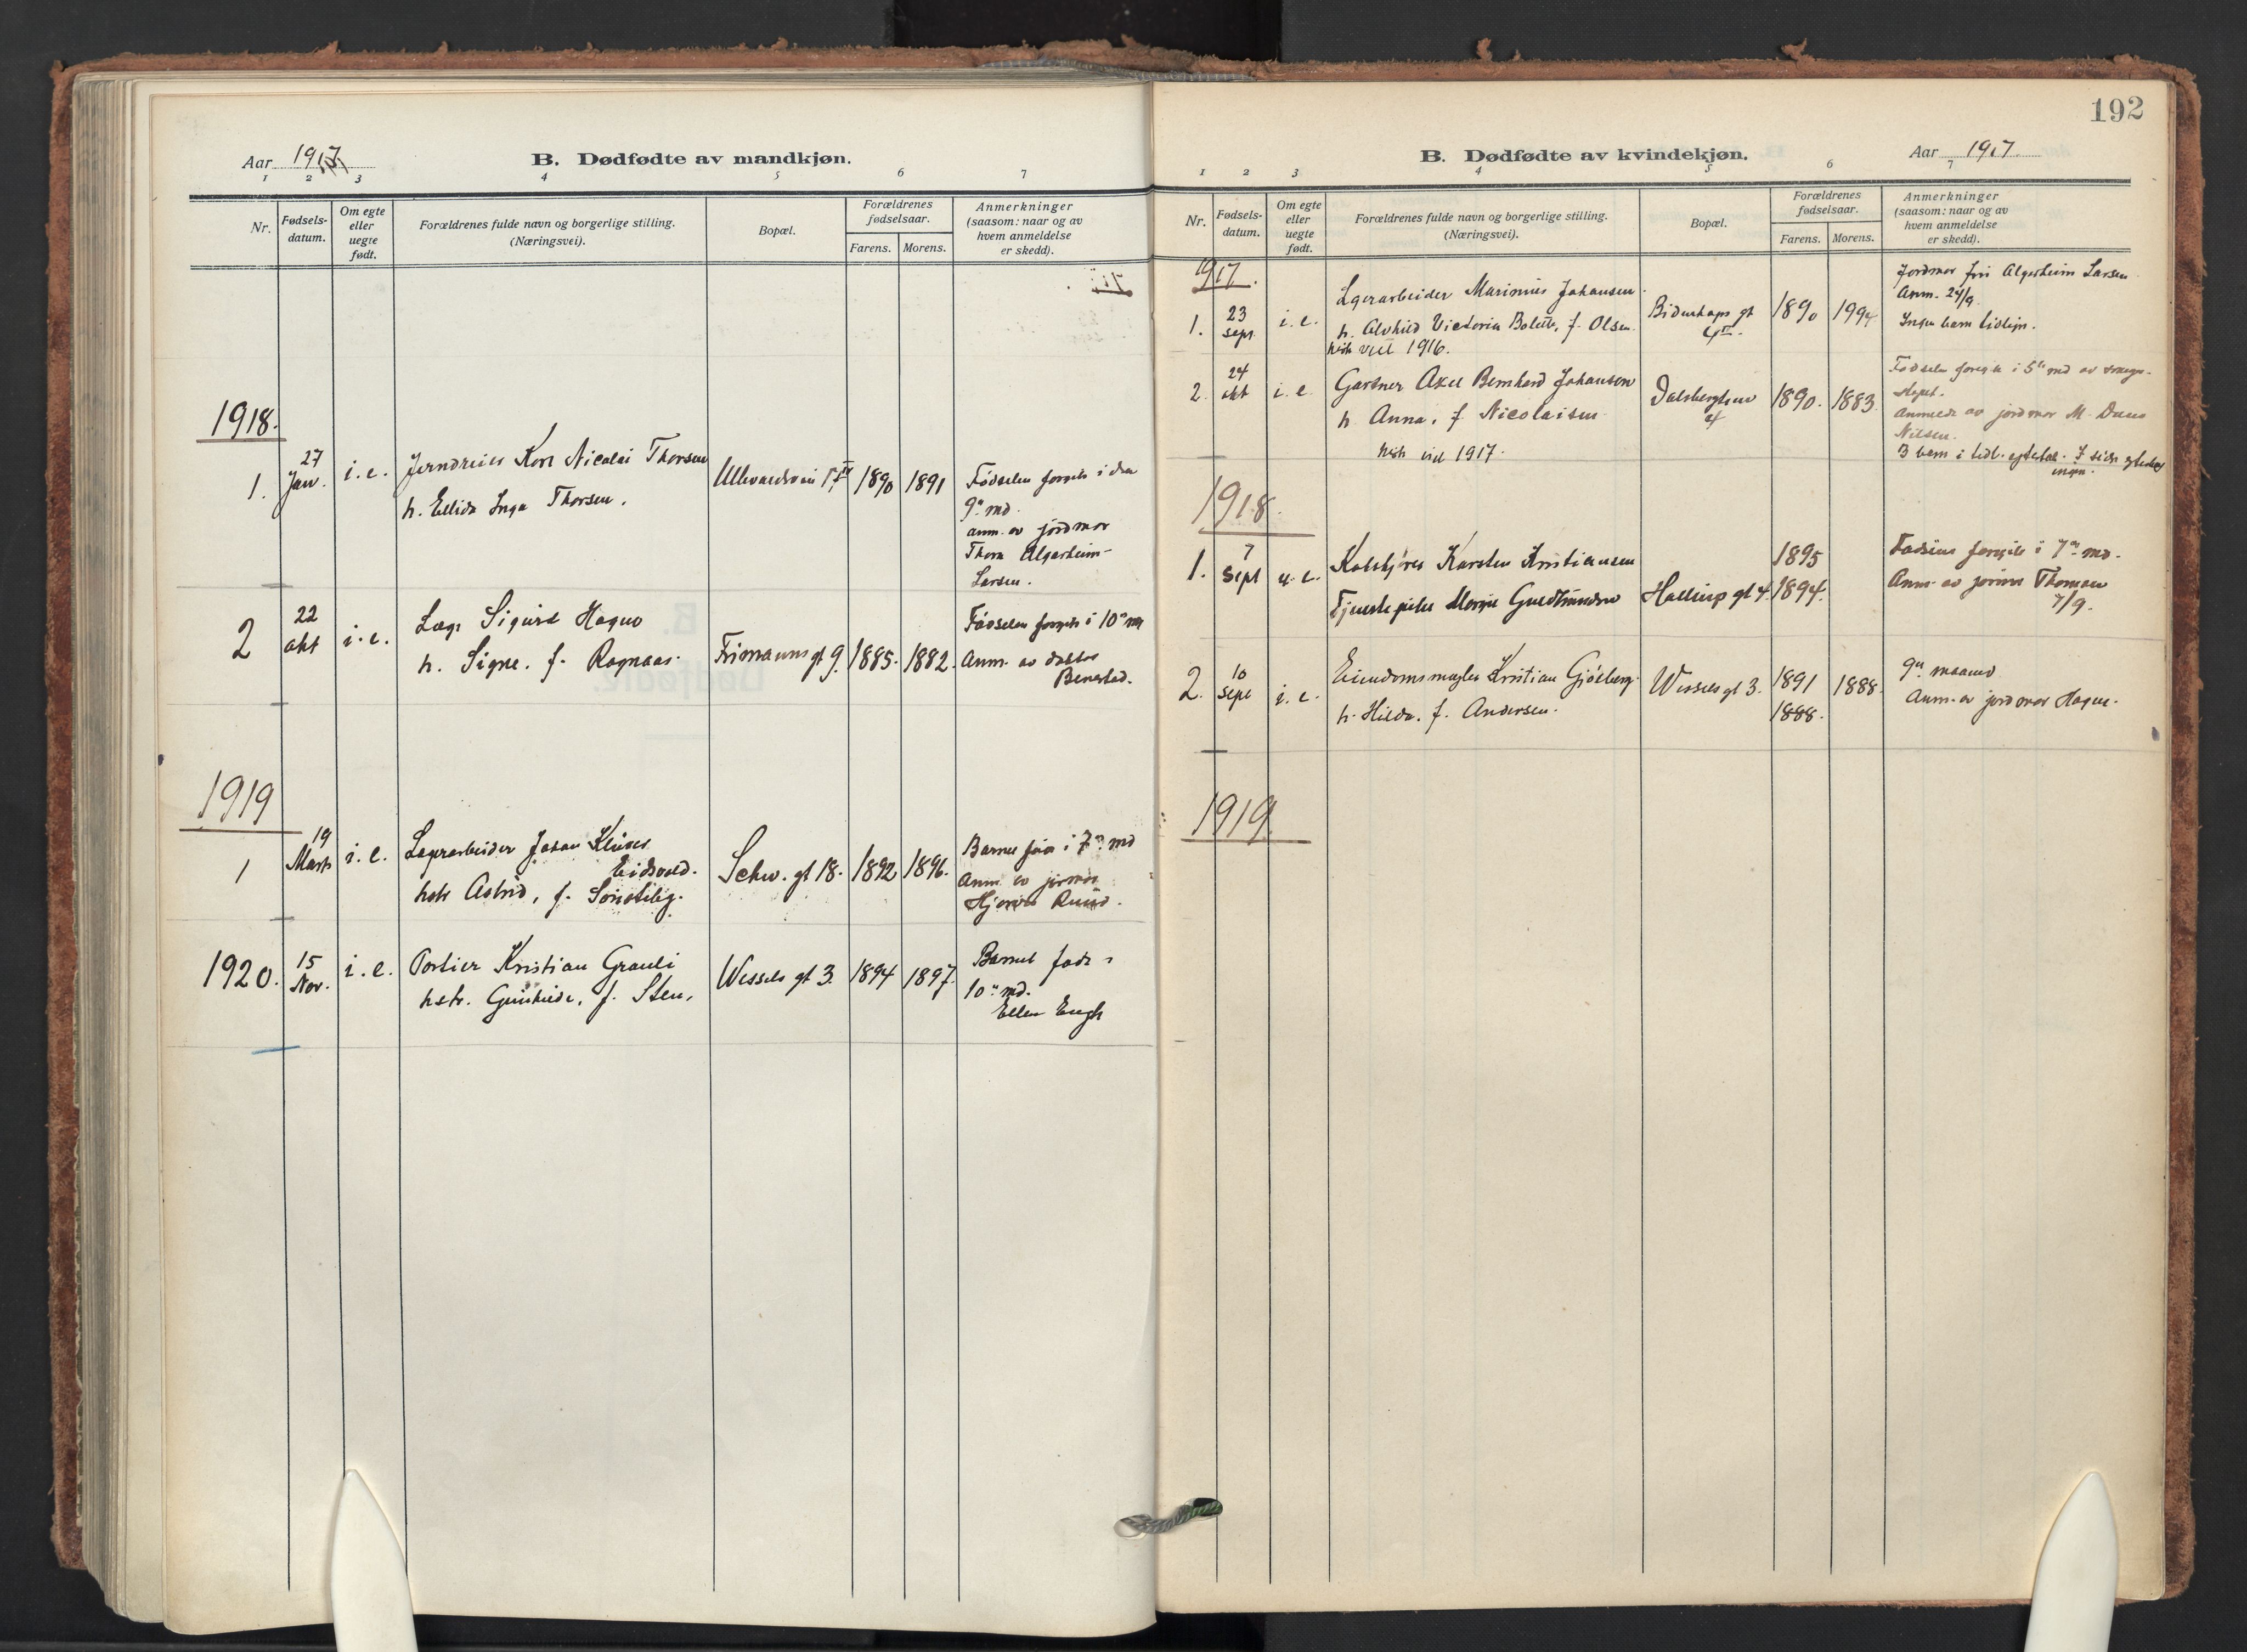 Aar 1917
B. Dødfødte av mandkjøn.
1 2 3 4 5 6 7
Nr.
Fødsels-
datum.
Om egte
eller
uegte
født.
Forældrenes fulde navn og borgerlige stilling.
(Næringsvei).
Bopæl.
Forældrenes
fødselsaar.
Farens. Morens.
Anmerkninger
(saasom: naar og av
hvem anmeldelse
er skedd).
1918.
1. 27 Jan. i. e. Jerndreier Karl Nicolai Thorsen
h. Ellida Inga Thorsen.
Ullevaalsvei 1890 1891
Fødselen foregik i den
9de md.
anm. av jordmor
Thora Algersheim-
Larsen.
2 22 okt i. e. Læge Sigurd Hagno
h. Signe. f. Rognaas.
Frimanns gt 9. 1885. 1882.
Fødselen foregik i 10de md
Anm. av doktor
Benestad.
1919
1 19 Marts i. e. Lagerarbeider Johan
Eidsvold.
hstr Astrid, f.
Schw. gt 18. 1892 1896.
Barnet født i 7de md
Anm. av jormor
Ruud.
1920. 15 Nov. i. e. Portier Kristian Grauli
hstr. Gunhilde, f. Sten,
Wessels gt 3. 1894 1897.
Barnet født i
10de md.
Ellen Engh
192
B. Dødfødte av kvindekjøn.
Aar 1917
1 2 3 4 5 6 7
Nr.
Fødsels-
datum.
Om egte
eller
uegte
født.
Forældrenes fulde navn og borgerlige stilling.
(Næringsvei).
Bopæl.
Forældrenes
fødselsaar.
Farens. Morens.
Anmerkninger
(saasom: naar og av
hvem anmeldelse
er skedd).
1917.
1. 23 Sept. i. e. Lgerarbeider Marinius Johansen
h. Alvhild Victoria Bolette, f. Olsen.
viet 1916.
gt 1890 1994
Jordmor fru Algersheim Larsen
Anm. 24/9.
Ingen barn tidligere.
2. 24 okt i. e. Gartner Axel Bernhard Johansen
h. Anna, f. Nicolaisen
viet 1917.
Dalsbergstien
4
1890. 1883.
Fødselen foregik i 5te md av svanger-
skapet.
Anmeldt av jordmor M. Dues
Nilsen.
3 barn i tidl. egteskab. I siste egteskab
ingen.
1918.
1. 7 Sept u. e. Karsten Kristiansen
Tjenestepike
Hallings gt 4. 1895
1894.
Fødselen foregik i 7de md.
Anm. av jormor Thomsen
7/9.
2. 10 sept i. e. Eiendomsmægler Kristian Gjölberg
h. Hilda. f. Andersen.
Wessels gt 3. 1891 1888.
1888.
9de maaned
Anm. av jordmor Hagne.
1919.